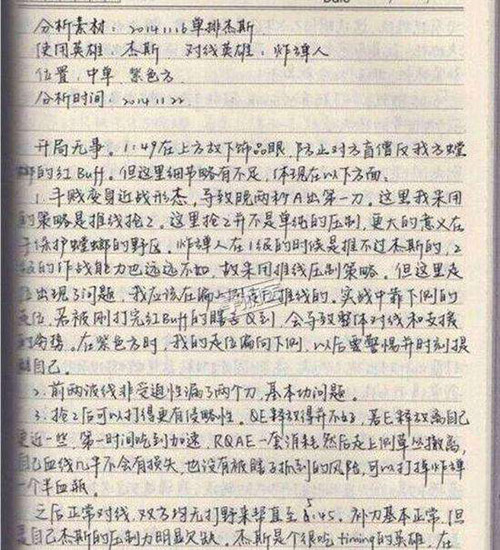 分析素材：2014.11.16单排杰斯
使用英雄：杰斯 对线英雄：炸弹人
位置：中单 紫色方
分析时间：2014.11.22
开局无事。1:49在上方放下饰品眼，防止对方盲僧反我方螳
螂的红Buff。但这里细节略有不足，体现在以下方面。
1.手贱变身近战形态，导致晚两秒A出第一刀，这里我采用
的策略是推线抢2。这里抢2并不是单纯的压制，更大的意义在
于保护螳螂的野区，炸弹人在1级的时候是推不过杰斯的，2
级的作战能力也远远不如，故采用推线压制策略。但这里走
位出现了问题，我应该在偏上侧走后推线的。实战中靠下侧的
走位，若被刚打完红Buff的瞎舌Q到，会导致整体对线和支援
的劣势。在紫色方时，我的走位偏向下侧，以后需警惕并时刻提
醒自己。
2.前两波线非受迫性漏了两个刀，基本功问题。
3.抢2后可以打得更有侵略性。QE释放得并不好，若E释放离自己
更近一些，第一时间吃到加速，RQAE一套消耗然后走上侧草丛撤离，
自己血线几乎不会有损失，也没有被瞎子抓到的风险，可以打掉炸弹
一个半血瓶。
之后正常对线，双方均无打野来帮直至5:45。补刀基本正常，但
是自己杰斯的压制力明显欠缺。杰斯是个很吃timing的英雄，在